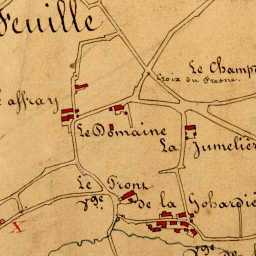 Feuille
Le Champ
Croix du Fresne
affray
Le Domaine
La Jumeliè
Le Pront
de la Gohardiè
X